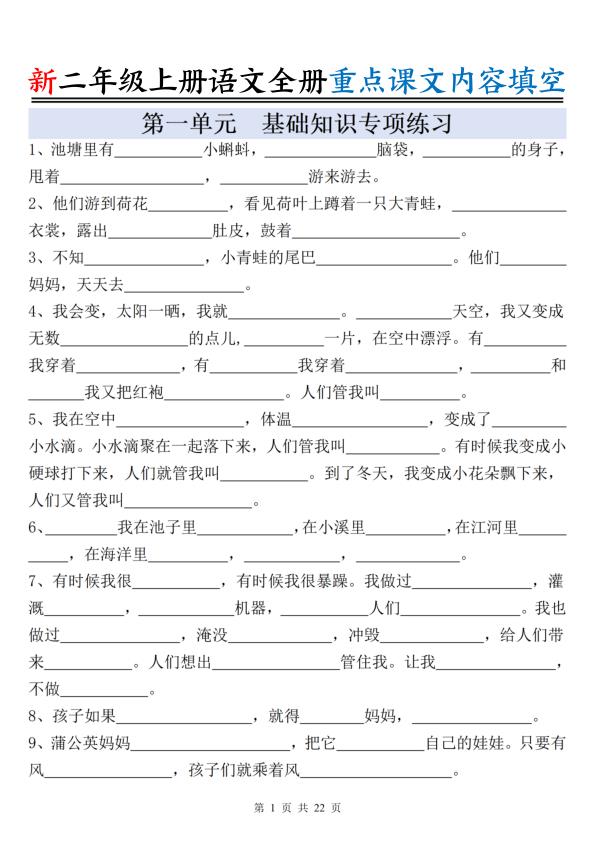 新二年级上册语文全册重点课文内容填空
第一单元 基础知识专项练习
1、池塘里有___________小蝌蚪，______________脑袋，___________的身子，
甩着__________________，___________游来游去。
2、他们游到荷花__________，看见荷叶上蹲着一只大青蛙，______________
衣裳，露出_____________肚皮，鼓着_____________________。
3、不知_______________，小青蛙的尾巴_________________。他们________
妈妈，天天去_______________。
4、我会变，太阳一晒，我就______________。____________天空，我又变成
无数________________的点儿,__________一片，在空中漂浮。有__________
我穿着_____________，有___________我穿着______________，__________和
_______我又把红袍_______________。人们管我叫__________。
5、我在空中________________，体温_________________，变成了_________
小水滴。小水滴聚在一起落下来，人们管我叫____________。有时候我变成小
硬球打下来，人们就管我叫___________。到了冬天，我变成小花朵飘下来，
人们又管我叫________________。
6、_________我在池子里____________,在小溪里__________,在江河里______
_____，在海洋里____________，____________，_____________。
7、有时候我很___________，有时候我很暴躁。我做过_______________，灌
溉__________，____________机器，___________人们_______________。我也
做过_______________，淹没_____________，冲毁_____________，给人们带
来___________。人们想出________________管住我。让我_______________，
不做___________。
8、孩子如果_________________，就得________妈妈，_______________。
9、蒲公英妈妈____________________，把它___________自己的娃娃。只要有
风________________，孩子们就乘着风___________________。
第 1 页 共 22 页